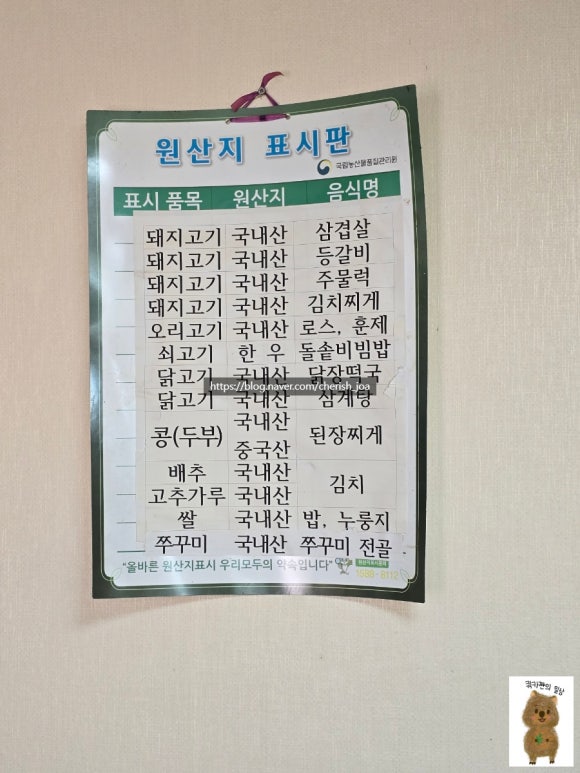 원산지 표시판
국립농산물품질관리원
표시 품목 원산지 음식명
돼지고기 국내산 삼겹살
돼지고기 국내산 등갈비
돼지고기 국내산 주물럭
돼지고기 국내산 김치찌게
오리고기 국내산 로스, 훈제
쇠고기 한 우 돌솥비빔밥
닭고기 국내산 닭장떡국
https://blog.naver.com/cherish_joa
닭고기 국내산 삼계탕
콩(두부) 국내산 중국산 된장찌게
배추 국내산 김치
고추가루 국내산
쌀 국내산 밥, 누룽지
쭈꾸미 국내산 쭈꾸미 전골
"올바른 원산지표시 우리모두의 약속입니다"
1588-8112